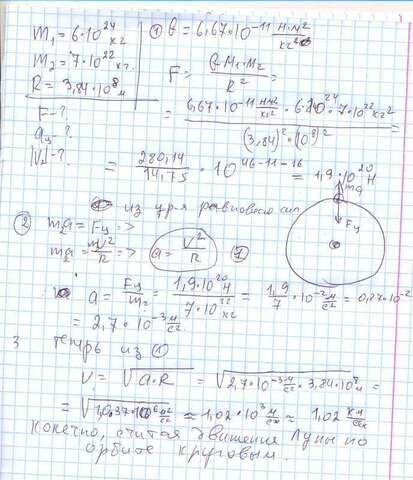 m₁ = 6·10²⁴ кг
m₂ = 7·10²² кг.
R = 3,84·10⁸ м
F-?
aц-?
|V|-?
① G = 6,67·10⁻¹¹ Н·м²/кг²
F = G·m₁·m₂/R² =
= 6,67·10⁻¹¹ Н·м²/кг² · 6·10²⁴·7·10²² кг²/(3,84)²·(10⁸)² =
= 280,14/14,75 · 10^(46-11-16) = 1,9·10²⁰ Н
из ур-я равновесия сил
② m₂a = Fц =>
m₂a = mv²/R => a = V²/R
a = Fц/m₂ = 1,9·10²⁰ Н/7·10²² кг = 1,9/7·10⁻² м/с² = 0,27·10⁻²
= 2,7·10⁻³ м/с².
3 теперь из ①
V = √a·R = √2,7·10⁻³ м/с² · 3,84·10⁸ м =
= √1,037·10⁶ м²/с² ≈ 1,02·10³ м/сек ≈ 1,02 км/сек
конечно, считая движения Луны по
орбите круговым.
mа
Fц